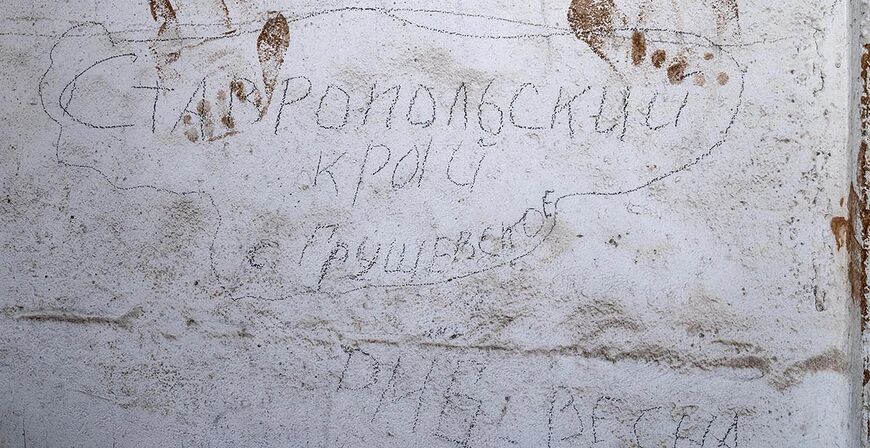 Ставропольский
край
с Грушевское
РМЕ
ВЕСНА